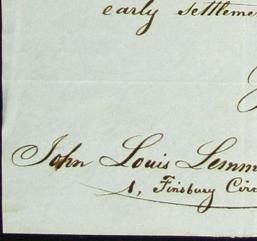 early settleme
John Louis Lemm
1, Finsbury Circ